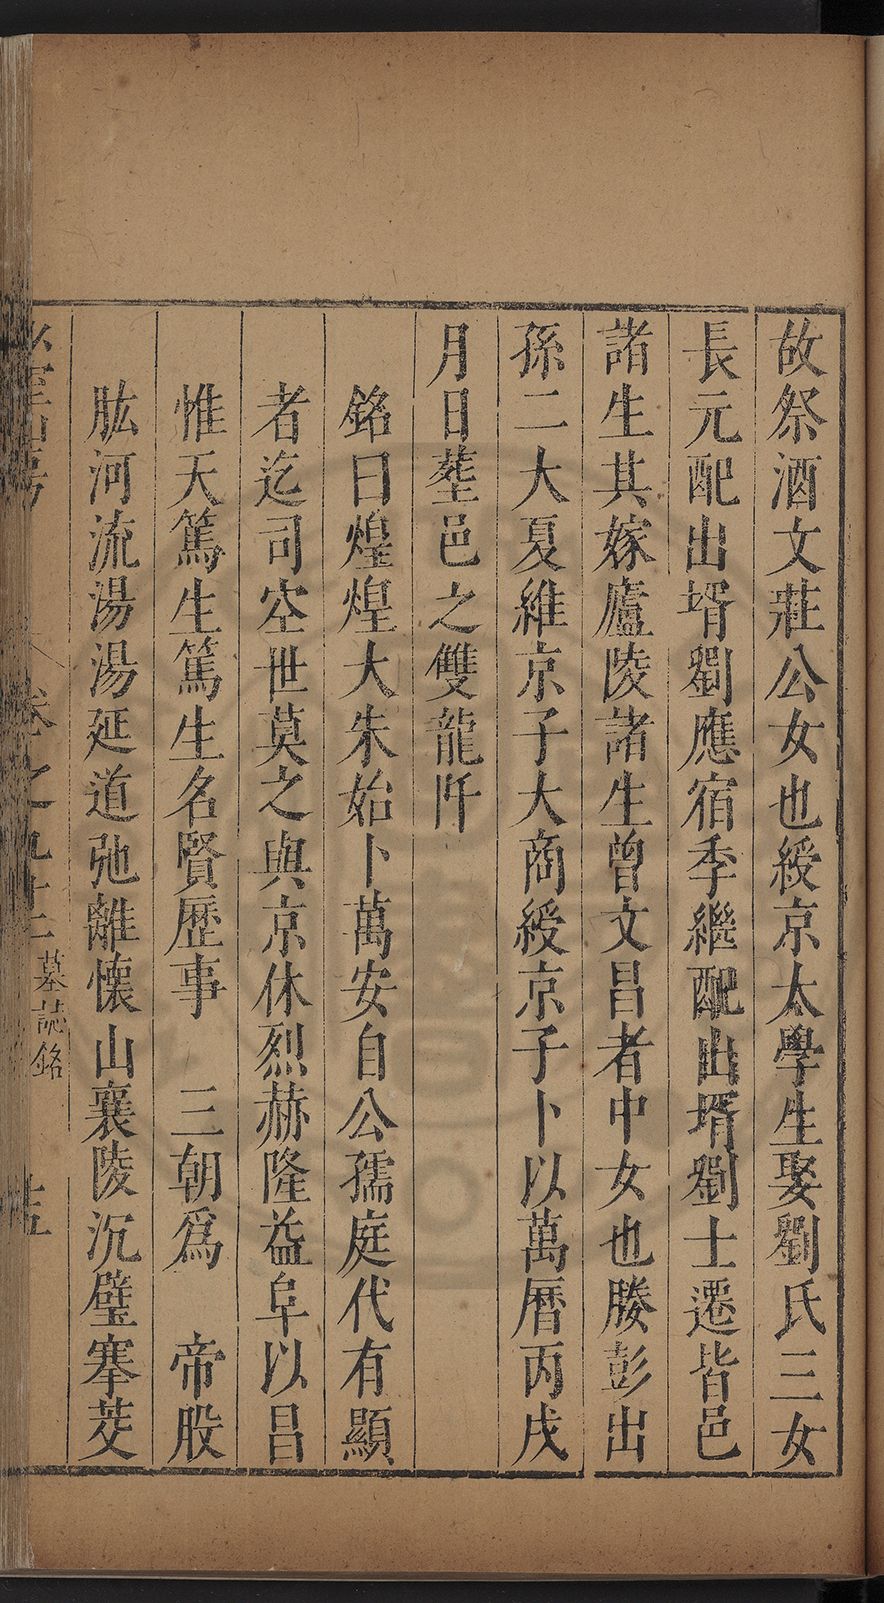 故祭酒文莊公女也綬京太學生娶劉氏三女
長元配出壻劉應宿季繼配出壻劉士遷皆邑
諸生其嫁廬陵諸生曾文昌者中女也媵彭出
孫二大夏維京子大商綬京子卜以萬曆丙戌
月日塟邑之雙龍阡
銘曰煌煌大朱始卜萬安自公孺庭代有顯
者迄司空世莫之與京休烈赫隆益阜以昌
惟天篤生篤生名賢歷事　三朝爲　帝股
肱河流湯湯延道弛離懷山襄陵沉璧搴茭
卷之九十二　墓誌銘　十五